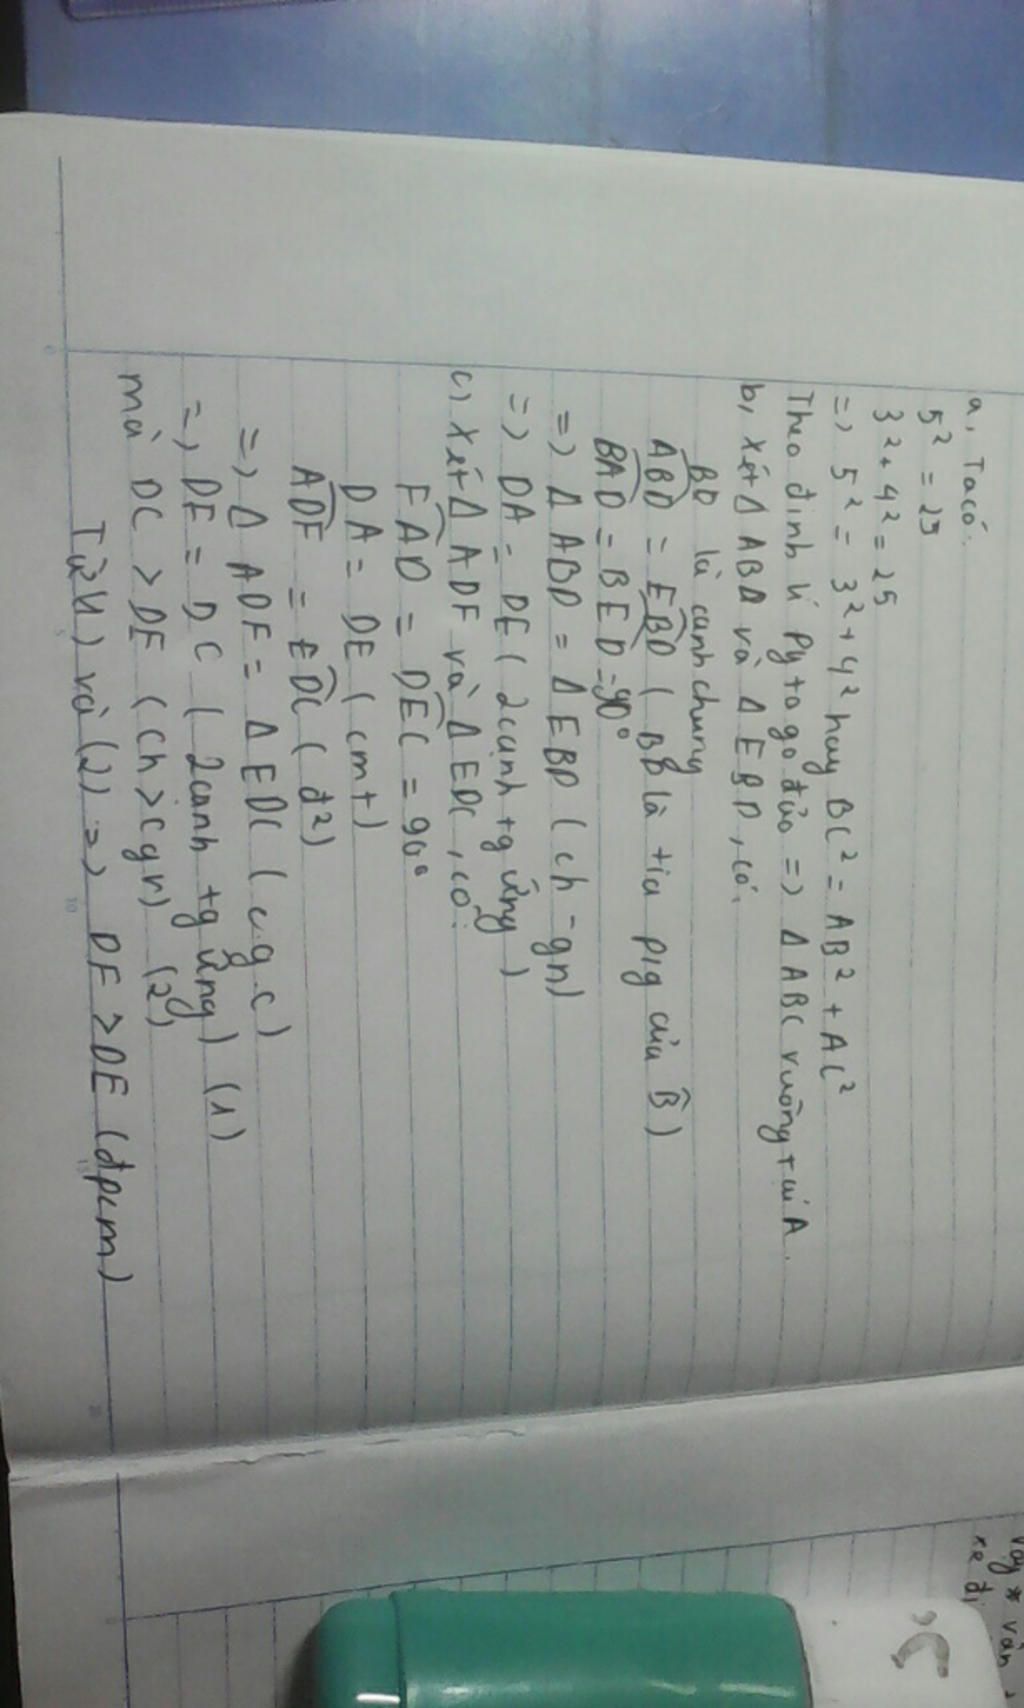 a, Ta có:
5² = 25
3² + 4² = 25
=> 5² = 3² + 4² hay BC² = AB² + AC²
Theo định lí Pytago đảo => Δ ABC vuông tại A.
b, Xét Δ ABD và Δ EBD, có:
BD là cạnh chung
ABD = EBD ( BD là tia p/g của B )
BAD = BED = 90°
=> Δ ABD = Δ EBD ( ch - gn)
=> DA = DE ( 2 cạnh tg ứng )
c, Xét Δ ADF và Δ EDC, có:
FAD = DEC = 90°
DA = DE ( cmt)
ADF = EDC ( đ²)
=> Δ ADF = Δ EDC ( c.g.c )
=> DF = DC ( 2 cạnh tg ứng ) (1)
mà DC > DE ( ch > cgv) (2)
Từ (1) và (2) => DF > DE (đpcm)
vậy * vận
xe đi